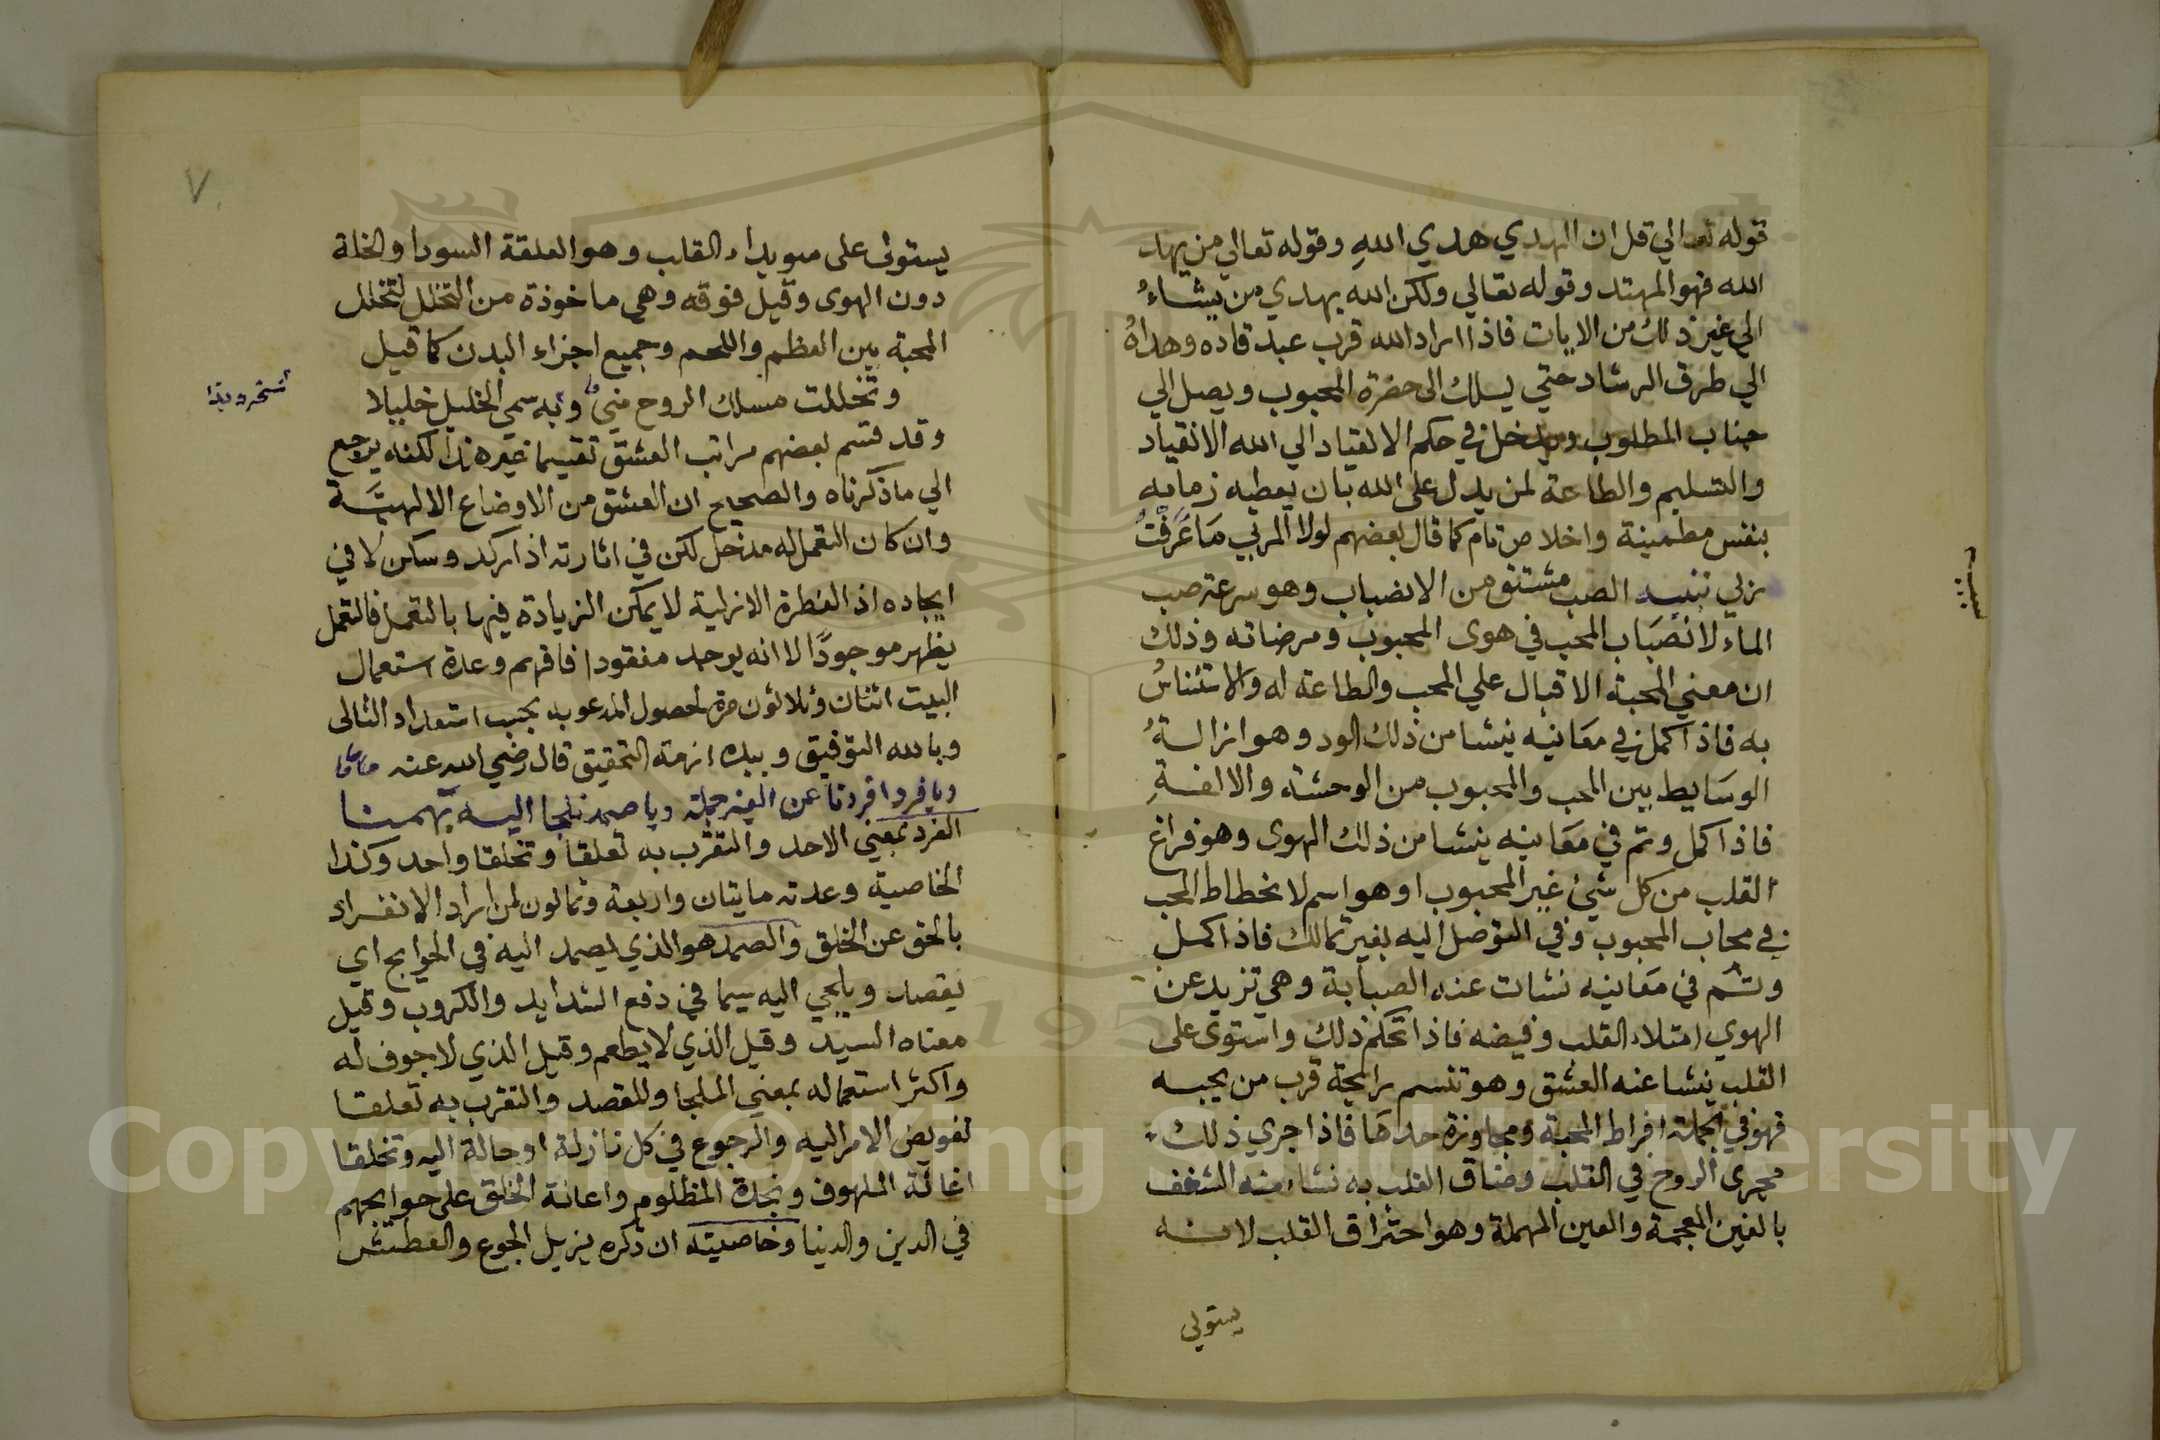 قوله تعالي قل ان الهدي هدي اللهِ وقوله تعالي من يهد
الله فهو المهتد وقوله تعالي ولكن الله يهدي من يشاءُ
الي غير ذلك من الايات فاذا اراد الله قرب عبد قاده وهداهُ
الي طرق الرشاد حتي يسلك الى حضرة المحبوب ويصل الي
جناب المطلوب ويدخل في حكم الانقياد الي الله الانقياد
والتسليم والطاعة لمن يدل على الله بان يعطيه زمامه
بنفس مطمينة واخلاص تام كما قال بعضهم لولا المربي مَا عَرَفْتُ
ربي تنبيه الصب مشتق من الانصباب وهو سرعة صب
الماء لانصَبَاب المحب في هوى المحبوب ومرضاته وذلك
ان معني المحبة الاقبال علي المحب والطاعة له والاستئناسُ
به فاذا كمل في معَانيه ينشا من ذلك الود وهو ازالةُ
الوسَايط بين المحب والمحبوب من الوحشة والالفةِ
فاذا كمل وتم في معَانيه ينشا من ذلك الهوى وهو فراغ
القلب من كل شيئ غير المحبوب او هو اسم لانحطاط المحب
في محاب المحبوب وفي التوصل اليه بغير تمالك فاذا كمل
وتم في معَانيه نشات عنه الصبابة وهي تزيد عن
الهوي امتلاء القلب وفيضه فاذا تحكم ذلك واستوى على
القلب ينشا عنه العشق وهو تنسم رايحة قرب من يحبه
فهو في الجملة افراط المحبة ومجاوزة حدهَا فاذا جري ذلك
مجرى الروح في القلب وضاق القلب به نشاء منه الشغف
بالغين المعجمة والعين المهملة وهو احتراق القلب لانه
يستولي
تنبيه
٧
يستولى على سويداء القلب وهو العلقة السودا والخلة
دون الهوى وقيل فوقه وهي ماخوذة من التخلل لتخلل
المحبة بين العظم واللحم وجميع اجزاء البدن كما قيل
وتخللت مسلك الروح مني وبه سمي الخليل خليلا
وقد قسم بعضهم مراتب العشق تقسيما غير هذا لكنه يرجع
الي ما ذكرناه والصحيح ان العشق من الاوضاع الالهيَّة
وان كان التعمل له مدخل لكن في اثارته اذا ركد وسكن لا في
ايجاده اذ الفطرة الازلية لا يمكن الزيادة فيها بالتعمل فالتعمل
يظهر موجودًا لا انه يوجد مفقودا فافهم وعدة استعمال
البيت اثنان وثلاثون مرة لحصول المدعو به بحسب استعداد التالى
وبالله التوفيق وبيده ازمة التحقيق قال رضي الله عنه
ويا فرد افردنا عن الغير جملة ويا صمد نلجا اليه بهمنا
الفرد بمعني الاحد والتقرب به تعلقا وتخلقا واحد وكذا
الخاصية وعدته مايتان واربعة وثمانون لمن اراد الانفراد
بالحق عن الخلق والصمد هو الذي يصمد اليه في الحوايج اي
يقصد ويلجي اليه سيما في دفع الشدايد والكروب وقيل
معناه السيد وقيل الذي لا يطعم وقيل الذي لا جوف له
واكثر استعماله بمعني الملجا والمقصد والتقرب به تعلقا
تفويض الامر اليه والرجوع في كل نازلة او حالة اليه وتخلقا
اغاثة الملهوف ونجدة المظلوم واعانة الخلق على حوايجهم
في الدين والدنيا وخاصيته ان ذكره يزيل الجوع والعطش
Copyright © King Saud University